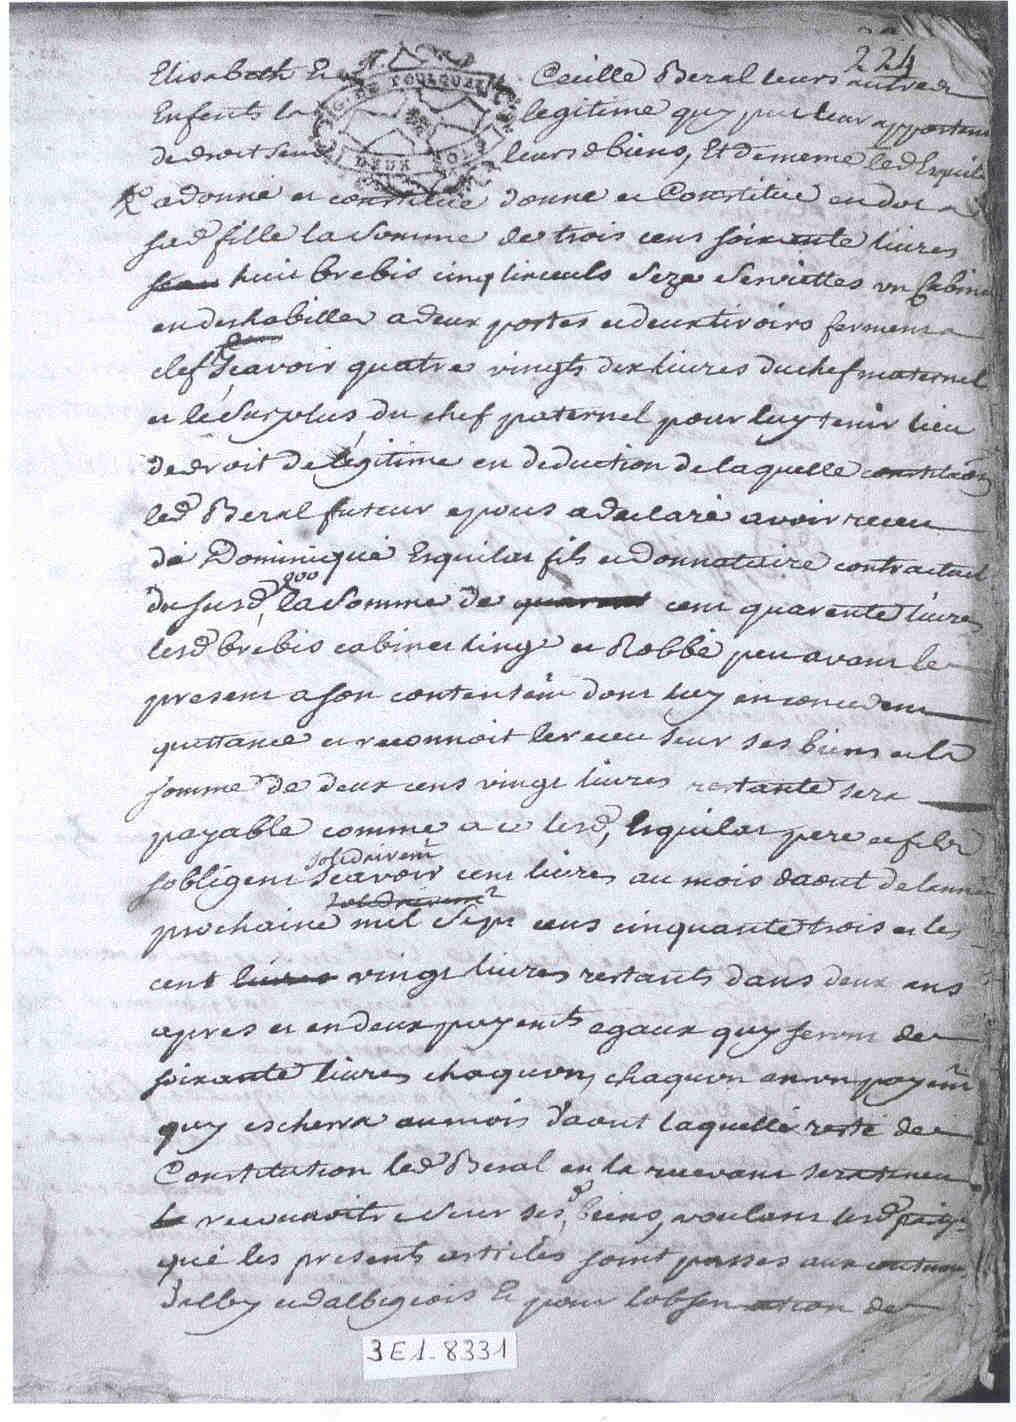 224
Elisabeth Et Cecille Beral leurs autres
Enfents la legitime quy peut leur appartenir
de droit seur leursd biens, Et de meme led Esquilat
a donné et constitué donne et Constitue en dot a
sad fille la somme de trois cens soixante livres
huit brebis cinq linceuls seze serviettes un Cabinet
en deshabiller a deux portes et deux tiroirs fermens a
clef Scavoir quatre vingts dix livres du chef maternel
et le surplus du chef paternel pour luy tenir lieu
de droit de legitime en deduction de laquelle constitaôn
led Beral futeur epous a declaré avoir receu
de Dominique Esquilat fils et donnataire contractuel
du susd la somme de quarant cent quarente livres
lesd brebis cabinet linge et Robbe peu avant le
present a son contentem̃ dont luy en concedent
quittance et reconnoit le receu seur ses biens et la
somme de deux cens vingt livres restante sera
payable comme a ce lesd, Esquilat pere et fils
solidairem̃
sobligent Scavoir cent livres au mois daout de lannée
solidairem̃
prochaine mil sept cens cinquante trois et les
cent livres vingt livres restants dans deux ans
apres et en deux payem̃ts egaux quy seront de
soixante livres chaqu'un, chaqu'un en un payem̃
quy eschera au mois daout laquelle reste de
Constitution led Beral en la recevant sera tenu
le reconoitre seur sesd, biens, voulant lesd partys
que les presents articles soint passes aux coutumes
dalby et dalbigeois Et pour lobservation de
3E1-8331